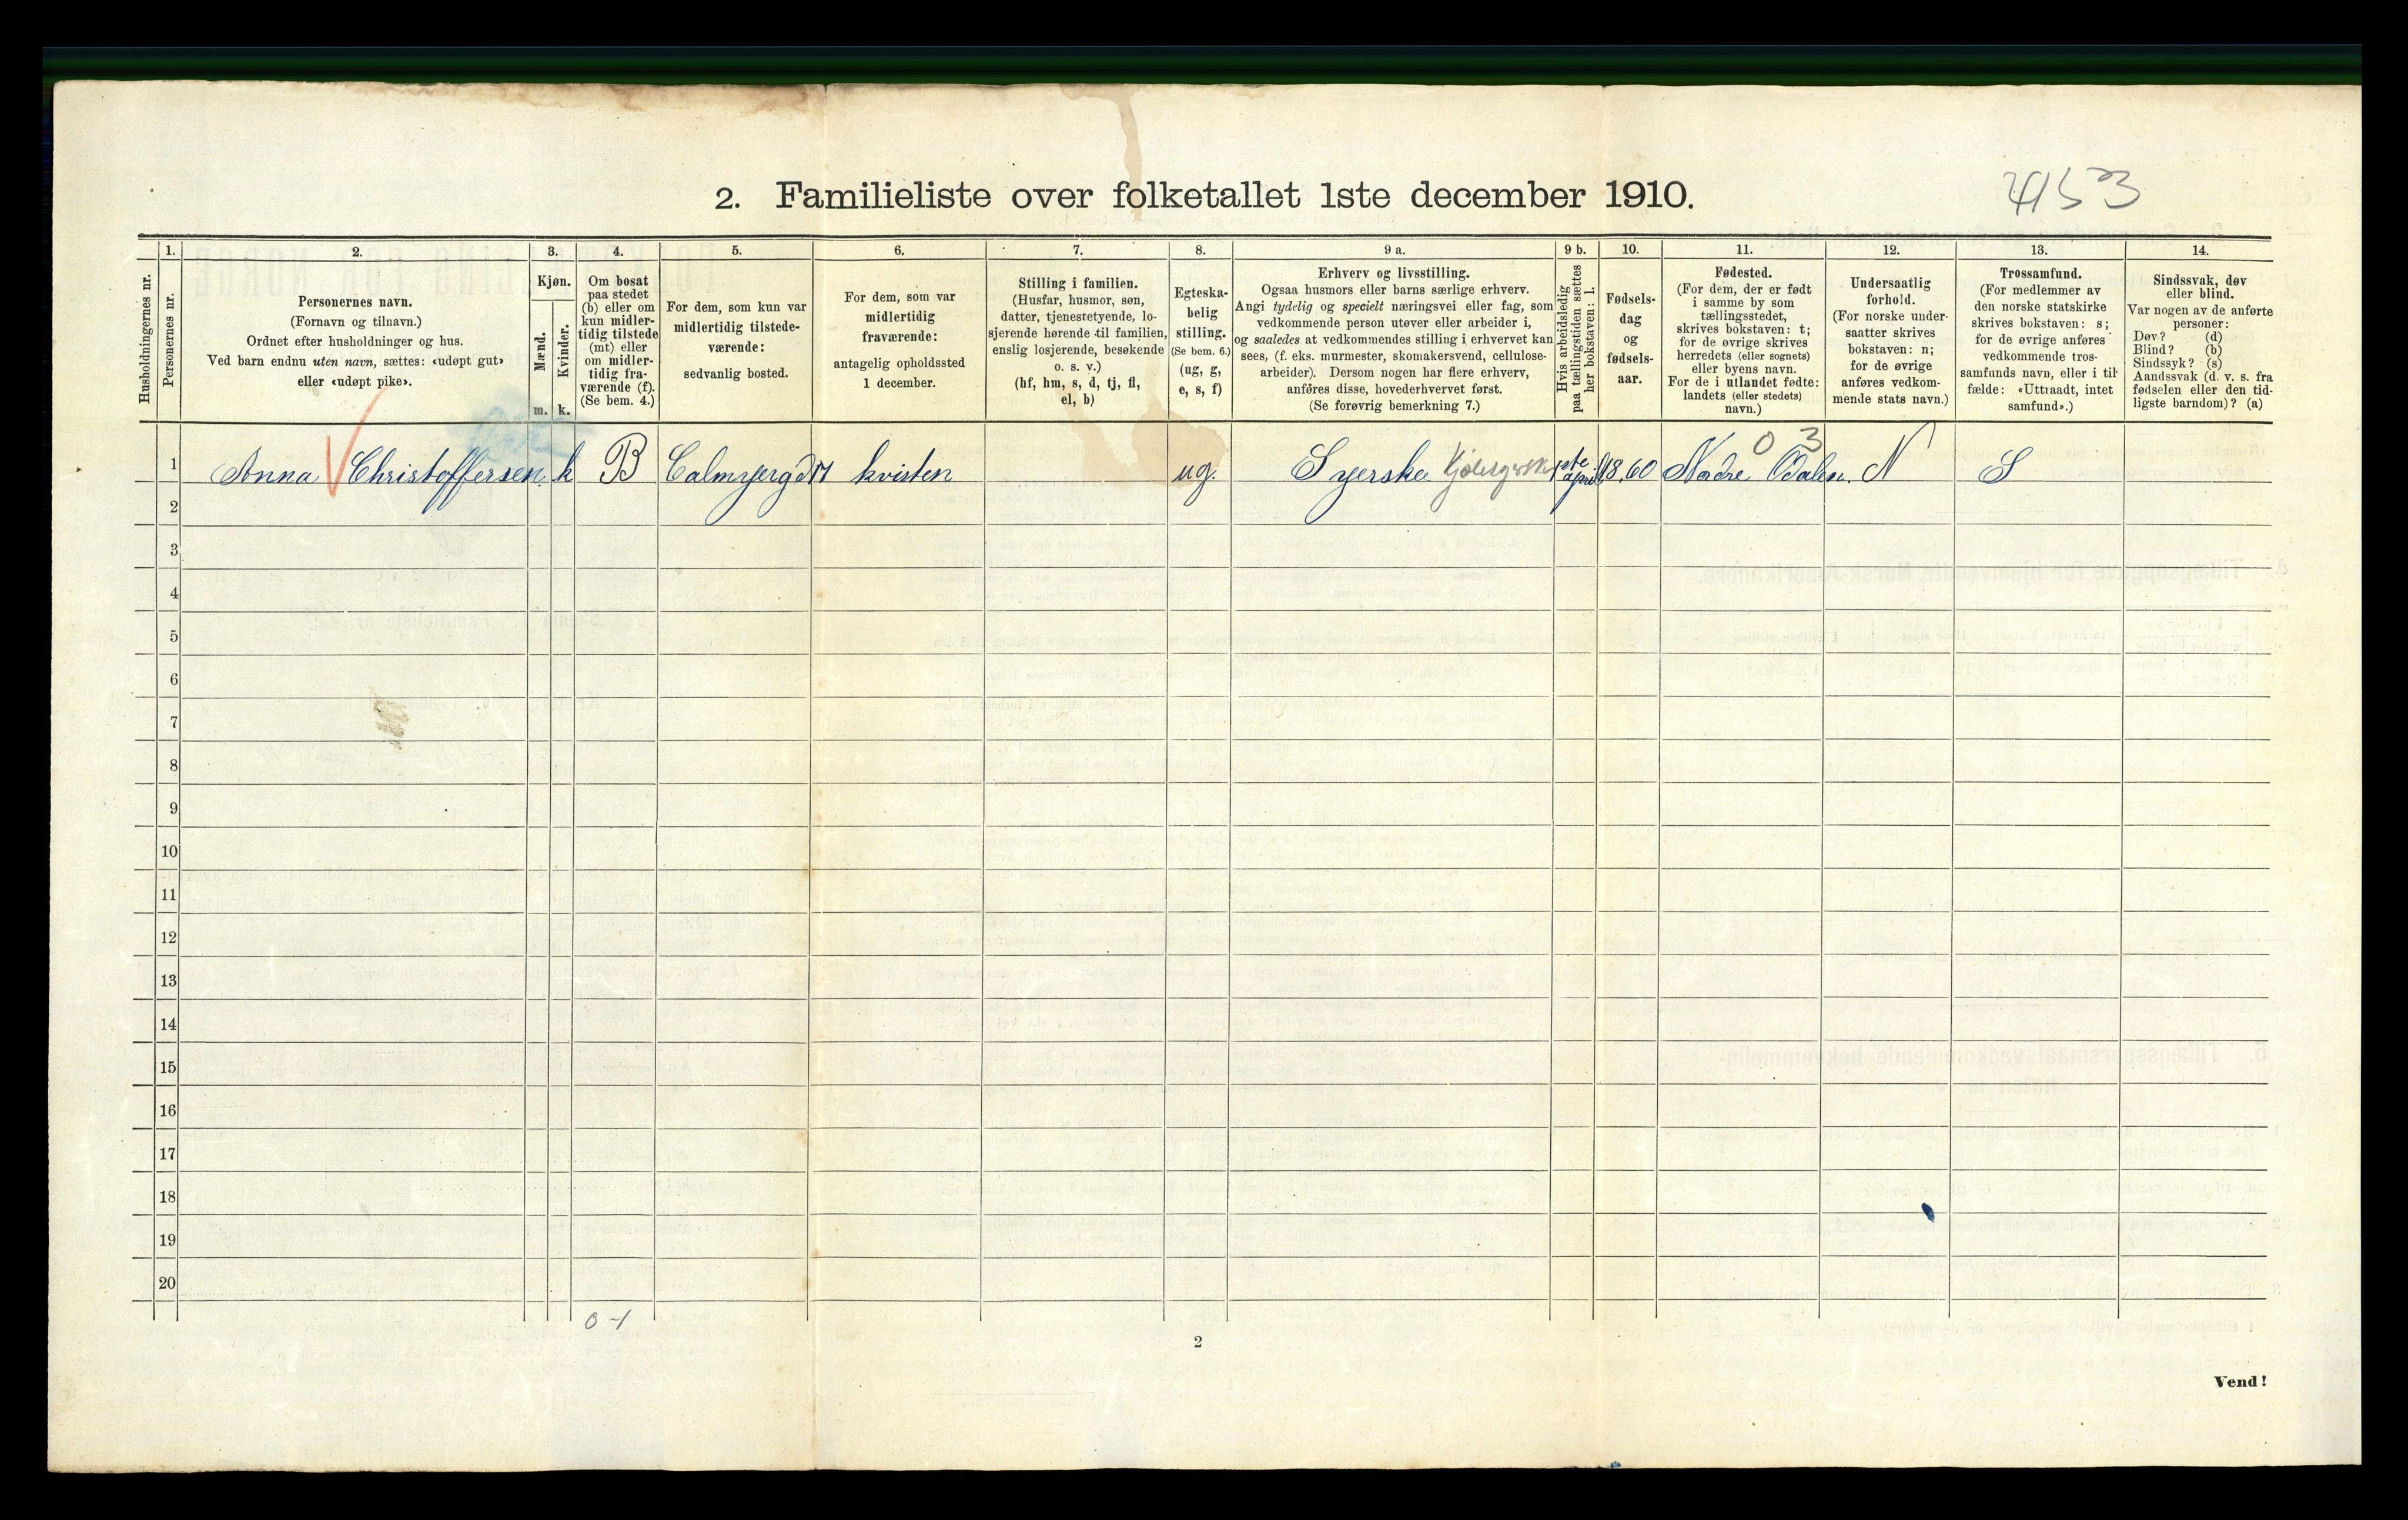 4153
2. Familieliste over folketallet 1ste december 1910.
Husholdningernes nr.
1.
Personernes nr.
2.
Personernes navn.
(Fornavn og tilnavn.)
Ordnet efter husholdninger og hus.
Ved barn endnu uten navn, sættes: «udøpt gut»
eller «udøpt pike».
3.
Kjøn.
Mænd.
m.
Kvinder.
k.
4.
Om bosat
paa stedet
(b) eller om
kun midler-
tidig tilstede
(mt) eller
om midler-
tidig fra-
værende (f).
(Se bem. 4.)
5.
For dem, som kun var
midlertidig tilstede-
værende:
sedvanlig bosted.
6.
For dem, som var
midlertidig
fraværende:
antagelig opholdssted
1 december.
7.
Stilling i familien.
(Husfar, husmor, søn,
datter, tjenestetyende, lo-
sjerende hørende til familien,
enslig losjerende, besøkende
o. s. v.)
(hf, hm, s, d, tj, fl,
el, b)
8.
Egteska-
belig
stilling.
(Se bem. 6.)
(ug, g,
e, s, f)
9 a.
Erhverv og livsstilling.
Ogsaa husmors eller barns særlige erhverv.
Angi tydelig og specielt næringsvei eller fag, som
vedkommende person utøver eller arbeider i,
og saaledes at vedkommendes stilling i erhvervet kan
sees, (f. eks. murmester, skomakersvend, cellulose-
arbeider). Dersom nogen har flere erhverv,
anføres disse, hovederhvervet først.
(Se forøvrig bemerkning 7.)
9 b.
Hvis arbeidsledig
paa tællingstiden sættes
her bokstaven: l.
10.
Fødsels-
dag
og
fødsels-
aar.
11.
Fødested.
(For dem, der er født
i samme by som
tællingsstedet,
skrives bokstaven: t;
for de øvrige skrives
herredets (eller sognets)
eller byens navn.
For de i utlandet fødte:
landets (eller stedets)
navn.)
12.
Undersaatlig
forhold.
(For norske under-
saatter skrives
bokstaven: n;
for de øvrige
anføres vedkom-
mende stats navn.)
13.
Trossamfund.
(For medlemmer av
den norske statskirke
skrives bokstaven: s;
for de øvrige anføres
vedkommende tros-
samfunds navn, eller i til-
fælde: «Uttraadt, intet
samfund».)
14.
Sindssvak, døv
eller blind.
Var nogen av de anførte
personer:
Døv? (d)
Blind? (b)
Sindssyk? (s)
Aandssvak (d. v. s. fra
fødselen eller den tid-
ligste barndom)? (a)
0 3
1 Anna Christoffersen. k B Calmyergd 17 kvisten ug. Syerske 1ste april 18,60 Nordre Odalen. N S
2
3
4
5
6
7
8
9
10
11
12
13
14
15
16
17
18
19
20
0-1
2
Vend!